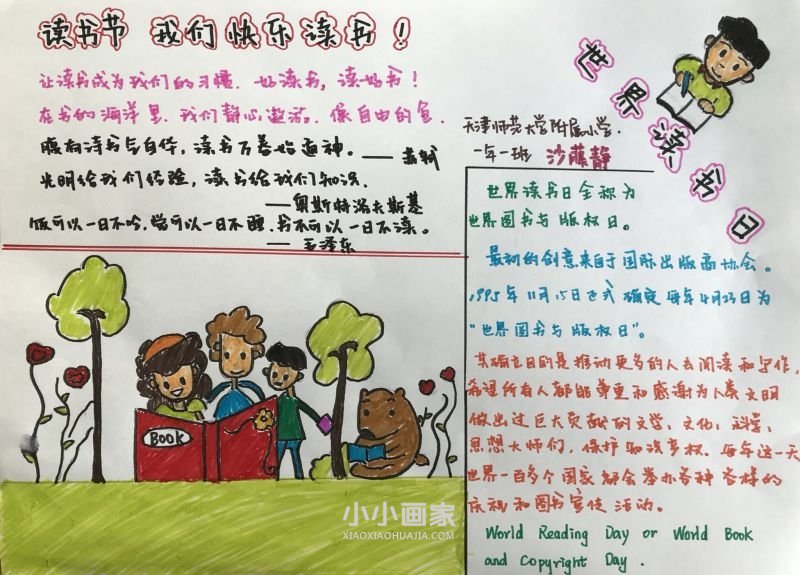 读书节 我们快乐读书！
让读书成为我们的习惯．好读书，读好书！
在书的海洋里．我们静心遨游．像自由的鱼．
腹有诗书气自华，读书万卷始通神。——苏轼
光明给我们经验，读书给我们知识．
——奥斯特洛夫斯基
饭可以一日不吃．觉可以一日不睡．书不可以一日不读。
——毛泽东
BOOK
小小画家
XIAOXIAOHUAJIA.COM
世界读书日
天津师范大学附属小学．
一年一班 沙藤静
世界读书日全称为
世界图书与版权日。
最初的创意来自于国际出版商协会。
1995年11月15日正式确定每年4月23日为
“世界图书与版权日”。
其确立目的是推动更多的人去阅读和写作，
希望所有人都能尊重和感谢为人类文明
做出过巨大贡献的文学、文化、科学、
思想大师们，保护知识产权．每年这一天
世界一百多个国家都会举办各种各样的
庆祝和图书宣传活动。
World Reading Day or World Book
and Copyright Day .